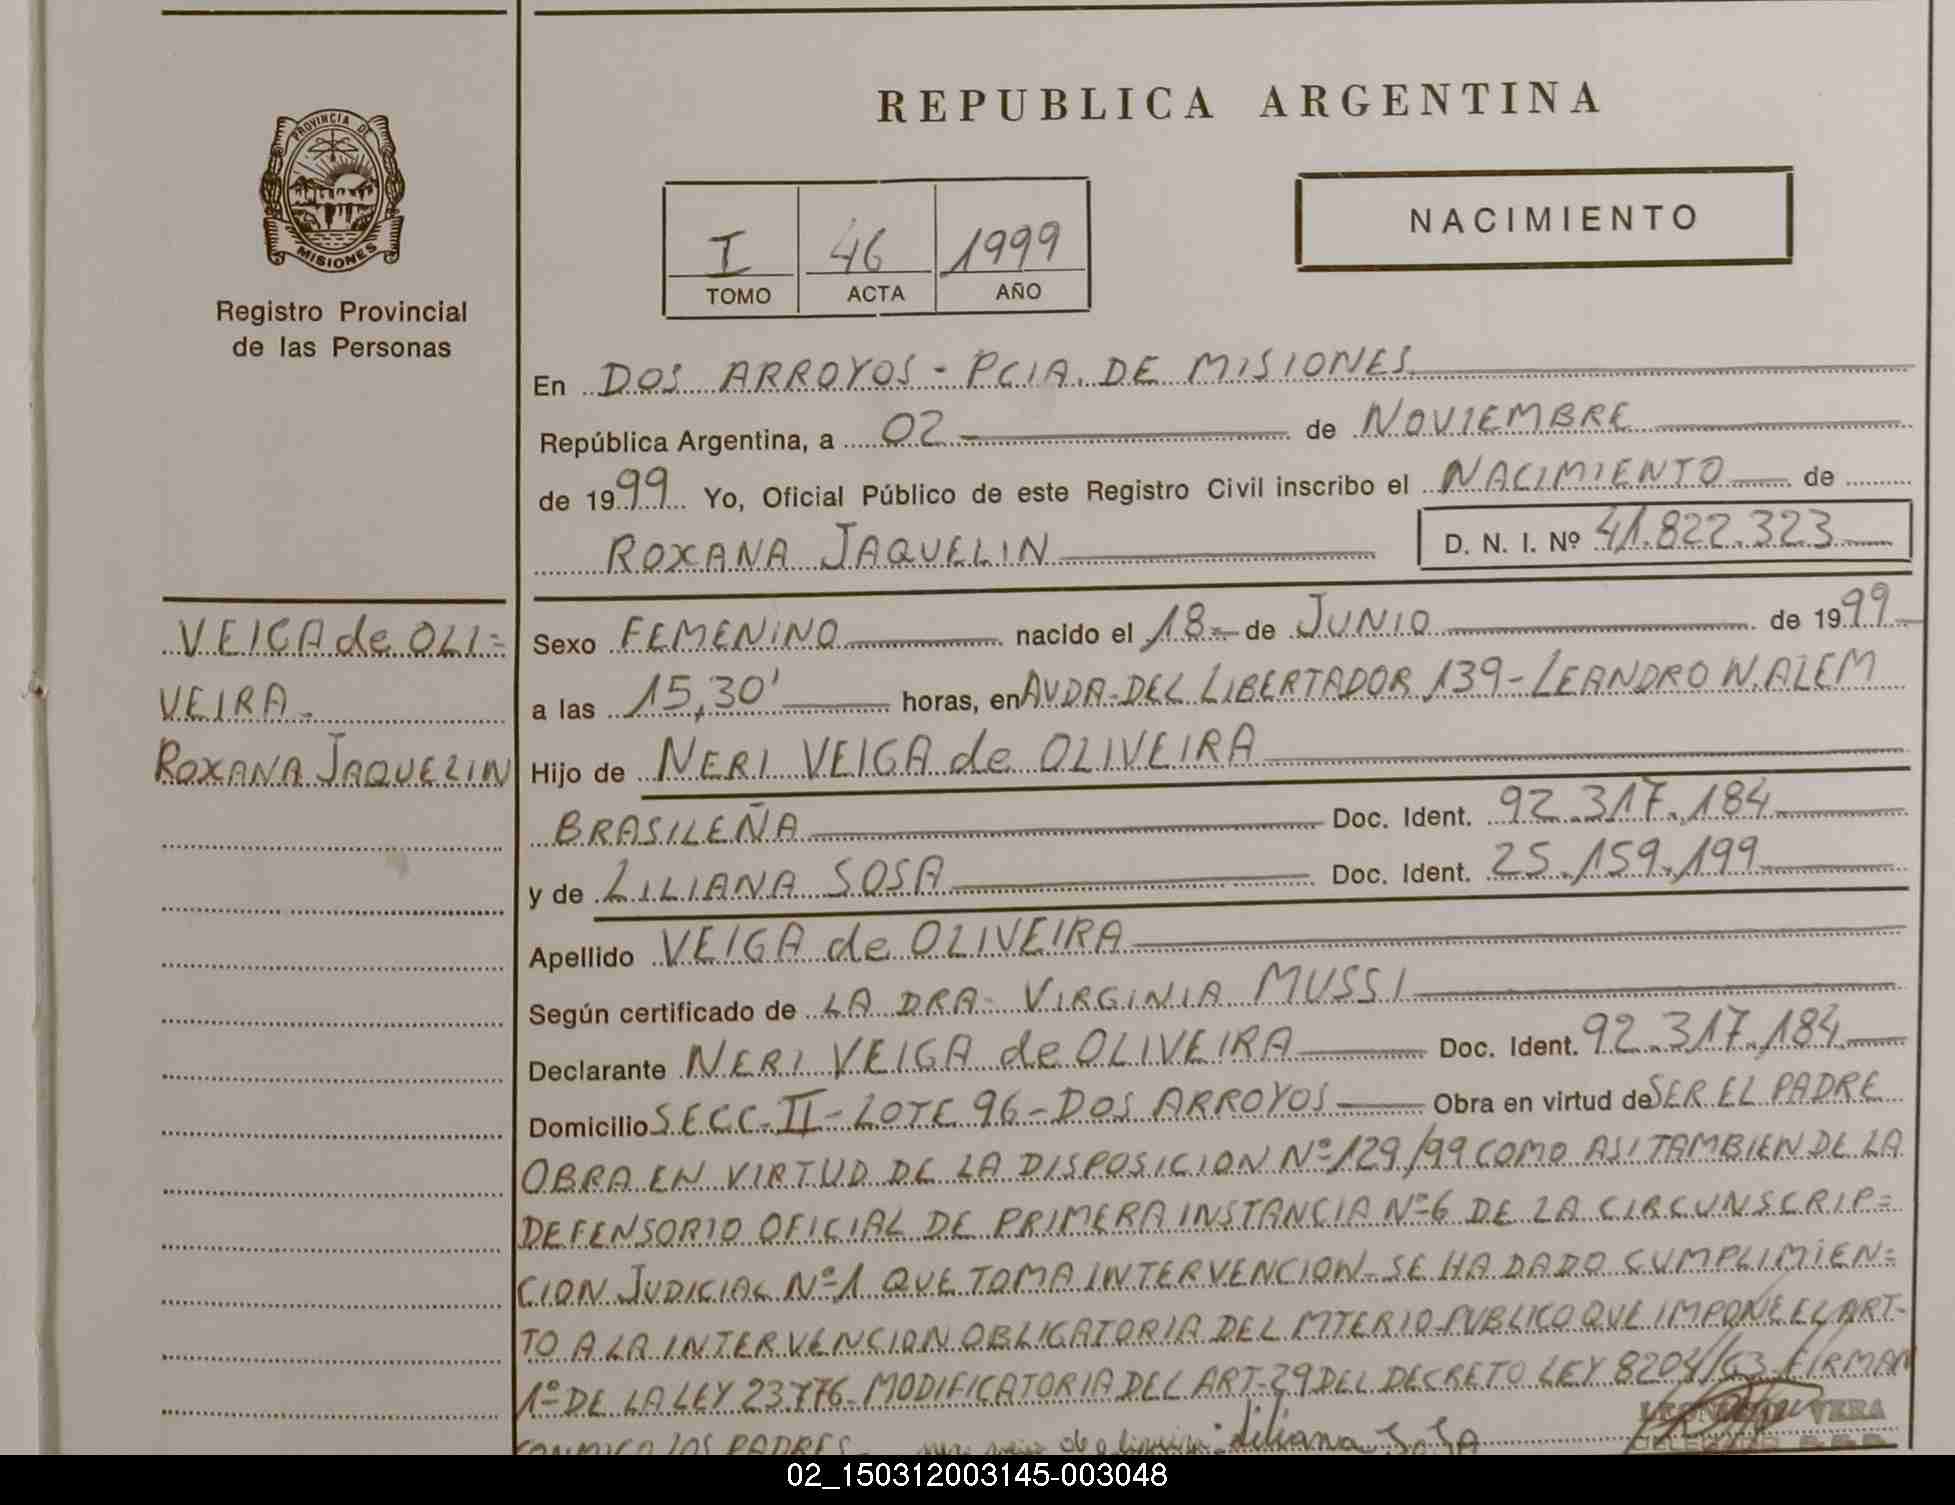 REPUBLICA ARGENTINA
PROVINCIA DE
MISIONES
Registro Provincial
de las Personas
I 46 1999
TOMO ACTA AÑO
NACIMIENTO
En DOS ARROYOS - PCIA. DE MISIONES
República Argentina, a 02 de NOVIEMBRE
de 1999 Yo, Oficial Público de este Registro Civil inscribo el NACIMIENTO de
ROXANA JAQUELIN D. N. I. Nº 41.822.323
VEIGA de OLI=
VEIRA.
ROXANA JAQUELIN
Sexo FEMENINO nacido el 18 de JUNIO de 1999
a las 15,30' horas, en AVDA. DEL LIBERTADOR 139 - LEANDRO N. ALEM
Hijo de NERI VEIGA de OLIVEIRA
BRASILEÑA Doc. Ident. 92.317.184
y de LILIANA SOSA Doc. Ident. 25.159.199
Apellido VEIGA de OLIVEIRA
Según certificado de LA DRA. VIRGINIA MUSSI
Declarante NERI VEIGA de OLIVEIRA Doc. Ident. 92.317.184
Domicilio SECC. II - LOTE 96 - DOS ARROYOS Obra en virtud de SER EL PADRE
OBRA EN VIRTUD DE LA DISPOSICION Nº 129/99 COMO ASI TAMBIEN DE LA
DEFENSORIO OFICIAL DE PRIMERA INSTANCIA Nº 6 DE LA CIRCUNSCRIP=
CION JUDICIAL Nº 1 QUE TOMA INTERVENCION. SE HA DADO CUMPLIMIEN=
TO A LA INTERVENCION OBLIGATORIA DEL MTERIO PUBLICO QUE IMPONE EL ART.
1º DE LA LEY 23.776. MODIFICATORIA DEL ART. 29 DEL DECRETO LEY 8204/63. FIRMAN
CONMIGO LOS PADRES. Liliana SOSA
VERA
02_150312003145-003048